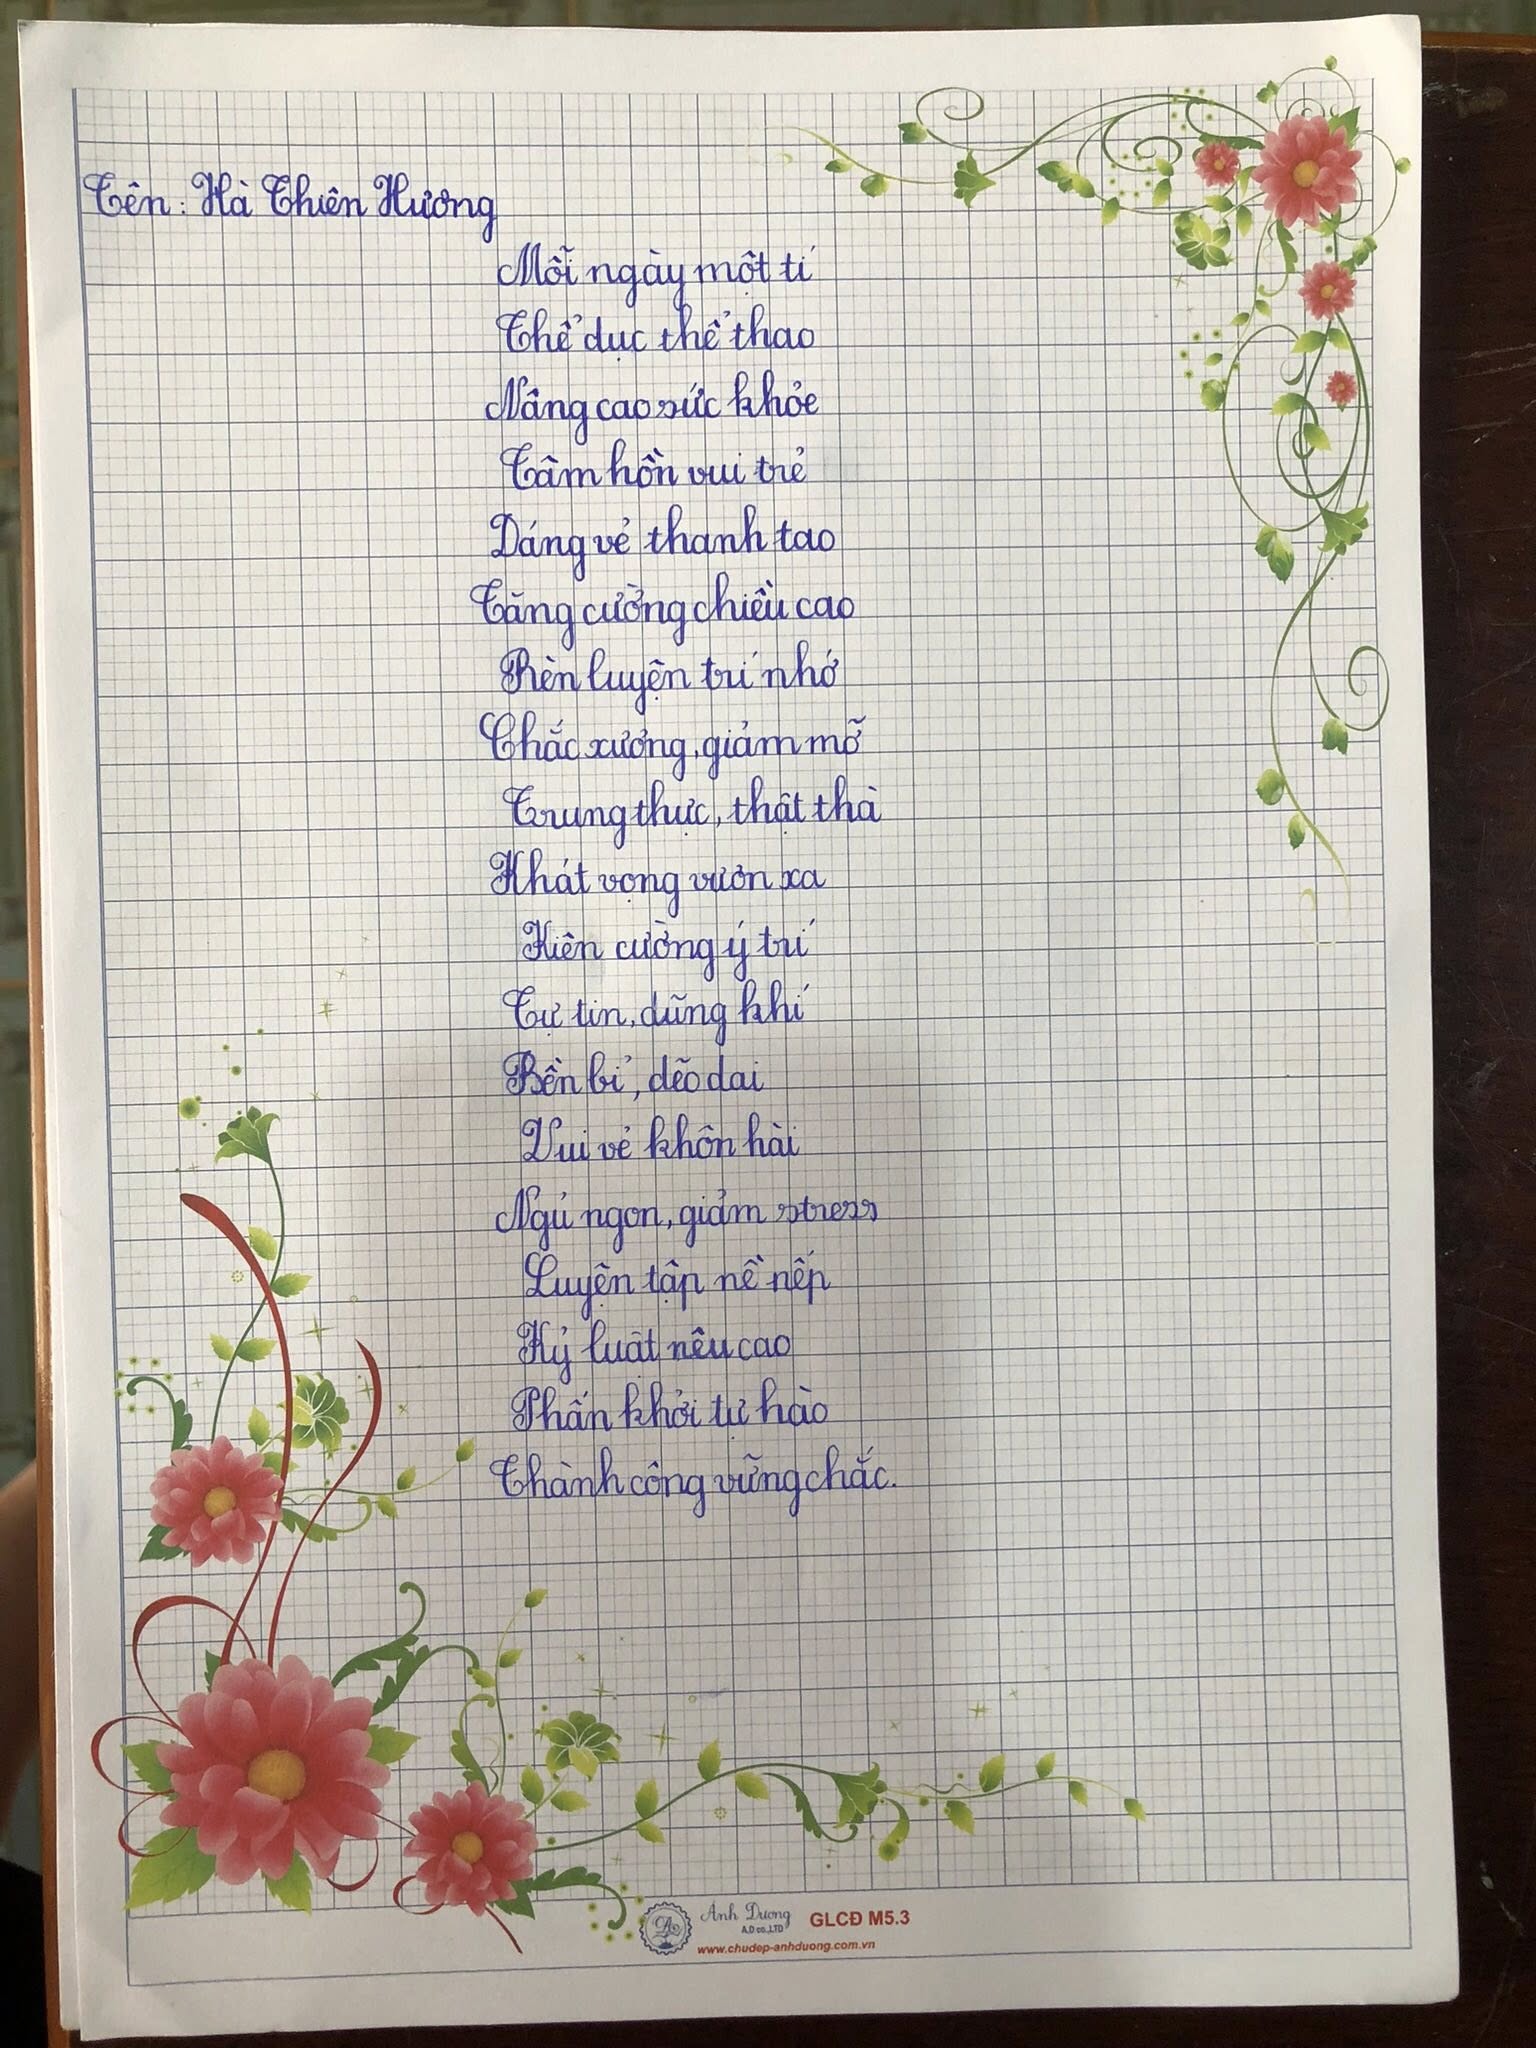 Tên: Hà Thiên Hương
Mỗi ngày một tí
Thể dục thể thao
Nâng cao sức khỏe
Tâm hồn vui trẻ
Dáng vẻ thanh tao
Tăng cường chiều cao
Rèn luyện trí nhớ
Chắc xương, giảm mỡ
Trung thực, thật thà
Khát vọng vươn xa
Kiên cường ý trí
Tự tin, dũng khí
Bền bỉ, dẽo dai
Vui vẻ khôn hài
Ngủ ngon, giảm stress
Luyện tập nề nếp
Kỷ luật nêu cao
Phấn khởi tự hào
Thành công vững chắc.
Ánh Dương
A.D co.,LTD
GLCĐ M5.3
www.chudep-anhduong.com.vn